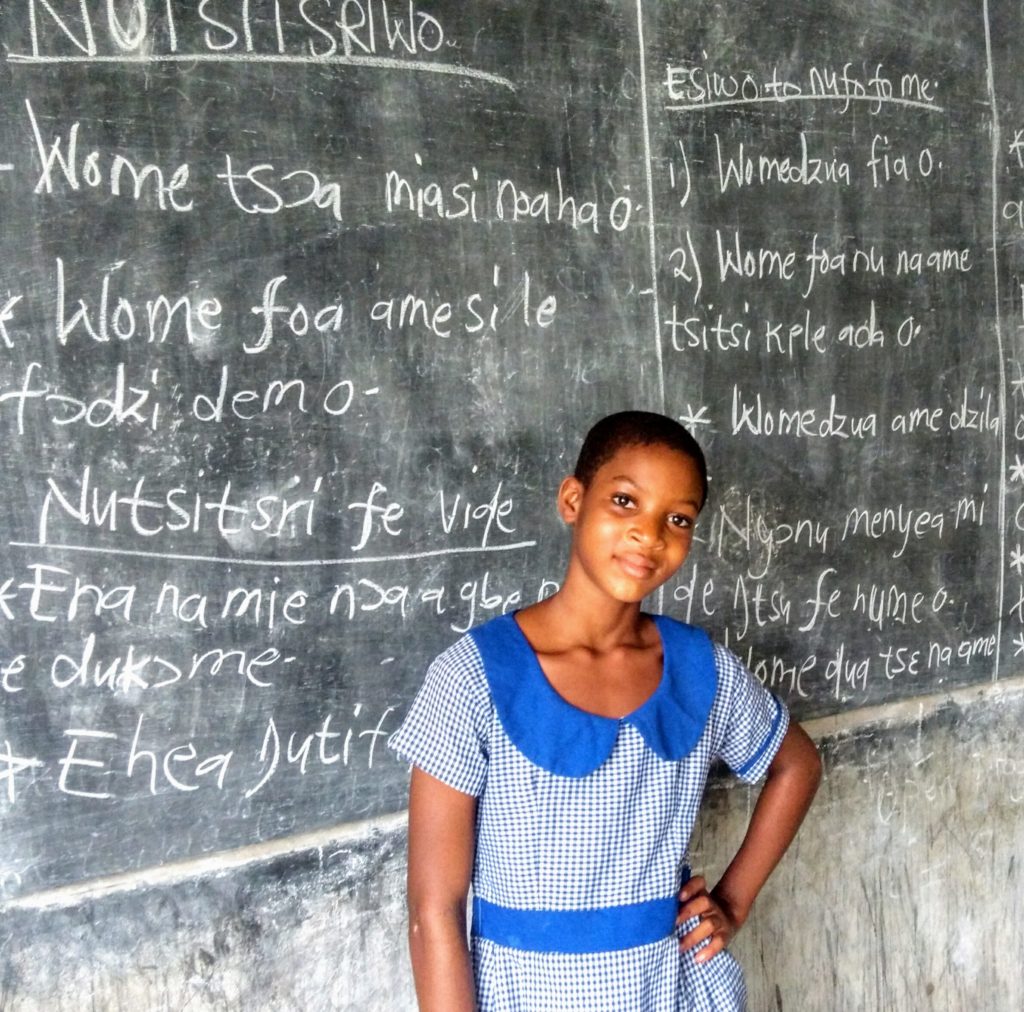 NUTSITSRIWO.
- Wome tsɔa miasi nɔaha o.
* Wome foa ame si le
fɔdzi demo.
Nutsitsri fe viɖe
* Ena na mie nɔa agbe
le dukɔme.
* Ehea Ŋutif
Esiwo to nufofo me.
1) Womedzua fia o.
2) Wome foa nu na ame
tsitsi kple ada o.
* Womedzua ame dzila
Nyɔnu menyea mi
ɖe Ŋtsu fe nume o.
Wome dua tsɛ na ame